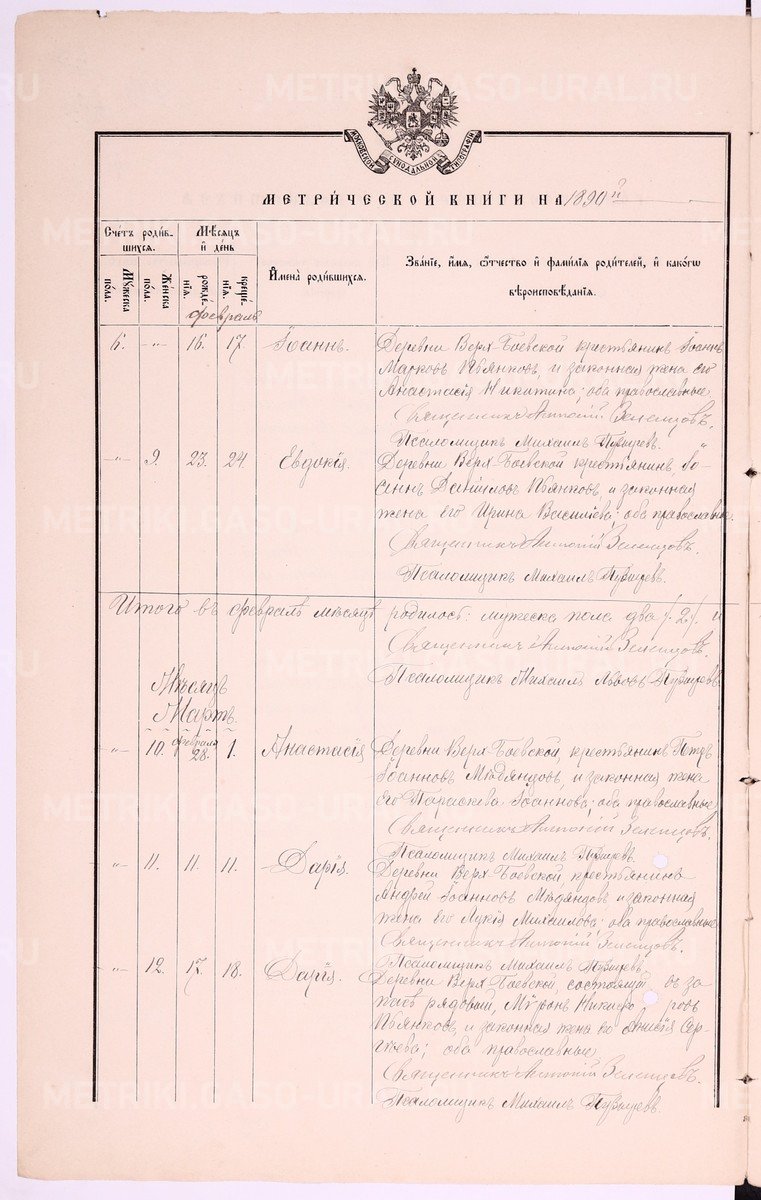 МОСКОВСКОЙ СѴНОДАЛЬНОЙ ТИПОГРАФІИ
МЕТРИ́ЧЕСКОЙ КНИ́ГИ НА 1890й
Сче́тъ роди́вшихся.
Му́жеска по́ла.
Же́нска по́ла.
Мѣ́сяцъ и де́нь
рожде́нїѧ.
креще́нїѧ.
И҆мена̀ роди́вшихся.
Зва́нїе, и҆́мѧ, ѻ҆́тчество и҆ фами́лїѧ роди́телей, и҆ како́гѡ
вѣроисповѣ́данїѧ.
февраль
6. " 16. 17. Іоаннъ. Деревни Верх-Боевской крестьянинъ Іоаннъ
Марковъ Пьянковъ, и законная жена его
Анастасія Никитина; оба православные
Священникъ Антоній Зеленцовъ.
Псаломщикъ Михаилъ
" 9. 23. 24. Евдокія. Деревни Верх-Боевской крестьянинъ Іо-
аннъ Даниловъ Пьянковъ, и законная
жена его Ирина Василіева; оба православные.
Священникъ Антоній Зеленцовъ.
Псаломщикъ Михаилъ
Итого въ февралѣ мѣсяцѣ родилось: мужеска пола два /2/. и
Священникъ Антоній Зеленцовъ.
Псаломщикъ Михаилъ Львовъ
Мѣсяцъ
Мартъ.
" 10. февраля 28. 1. Анастасія Деревни Верх-Боевской, крестьянинъ Петръ
Іоанновъ Мюдяндовъ, и законная жена
его Параскева Іоаннова; оба православные
Священникъ Антоній Зеленцовъ.
Псаломщикъ Михаилъ
" 11. 11. 11. Дарія. Деревни Верх-Боевской, крестьянинъ
Андрей Іоанновъ Мюдяндовъ и законная
жена его Лукія Михаилова; оба православные
Священникъ Антоній Зеленцовъ.
Псаломщикъ Михаилъ
" 12. 17. 18. Дарія. Деревни Верх-Боевской, состоящій въ за-
пасѣ рядовый, Мѵронъ Никифоровъ
Пьянковъ, и законная жена его Анисія Сер-
гѣева; оба православные
Священникъ Антоній Зеленцовъ.
Псаломщикъ Михаилъ
METRIKI.GASO-URAL.RU